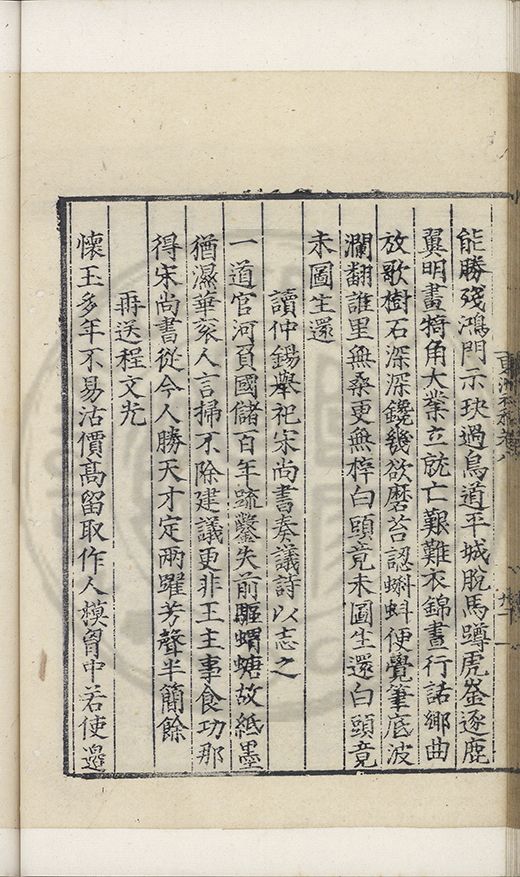 能勝殘鴻門示玦過鳥道平城脫馬蹲虎崟逐鹿
翼明畫犄角大業立就亡艱難衣錦晝行話鄉曲
放歌樹石深深鑱幾欲磨苔認蝌蚪便覺筆底波
瀾翻誰里無桑更無梓白頭竟未圖生還白頭竟
未圖生還
讀仲錫舉祀宋尚書奏議詩以志之
一道官河負國儲百年疏鑿失前驅蜩螗故紙墨
猶濕華袞人言掃不除建議更非王主事食功那
得宋尚書從今人勝天才定兩躍芳聲半簡餘
再送程文光
懷王多年不易沽價高留取作人模胷中若使邊
東洲 卷八